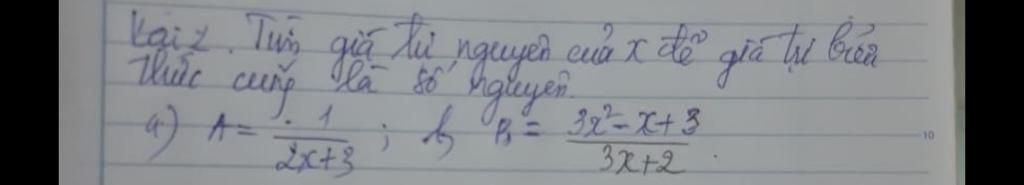 Bài 2. Tìm giá trị nguyên của x để giá trị biểu
thức cũng là số nguyên.
a) A = 1/(2x+3) ; b) B = (3x² - x + 3)/(3x+2) .
10